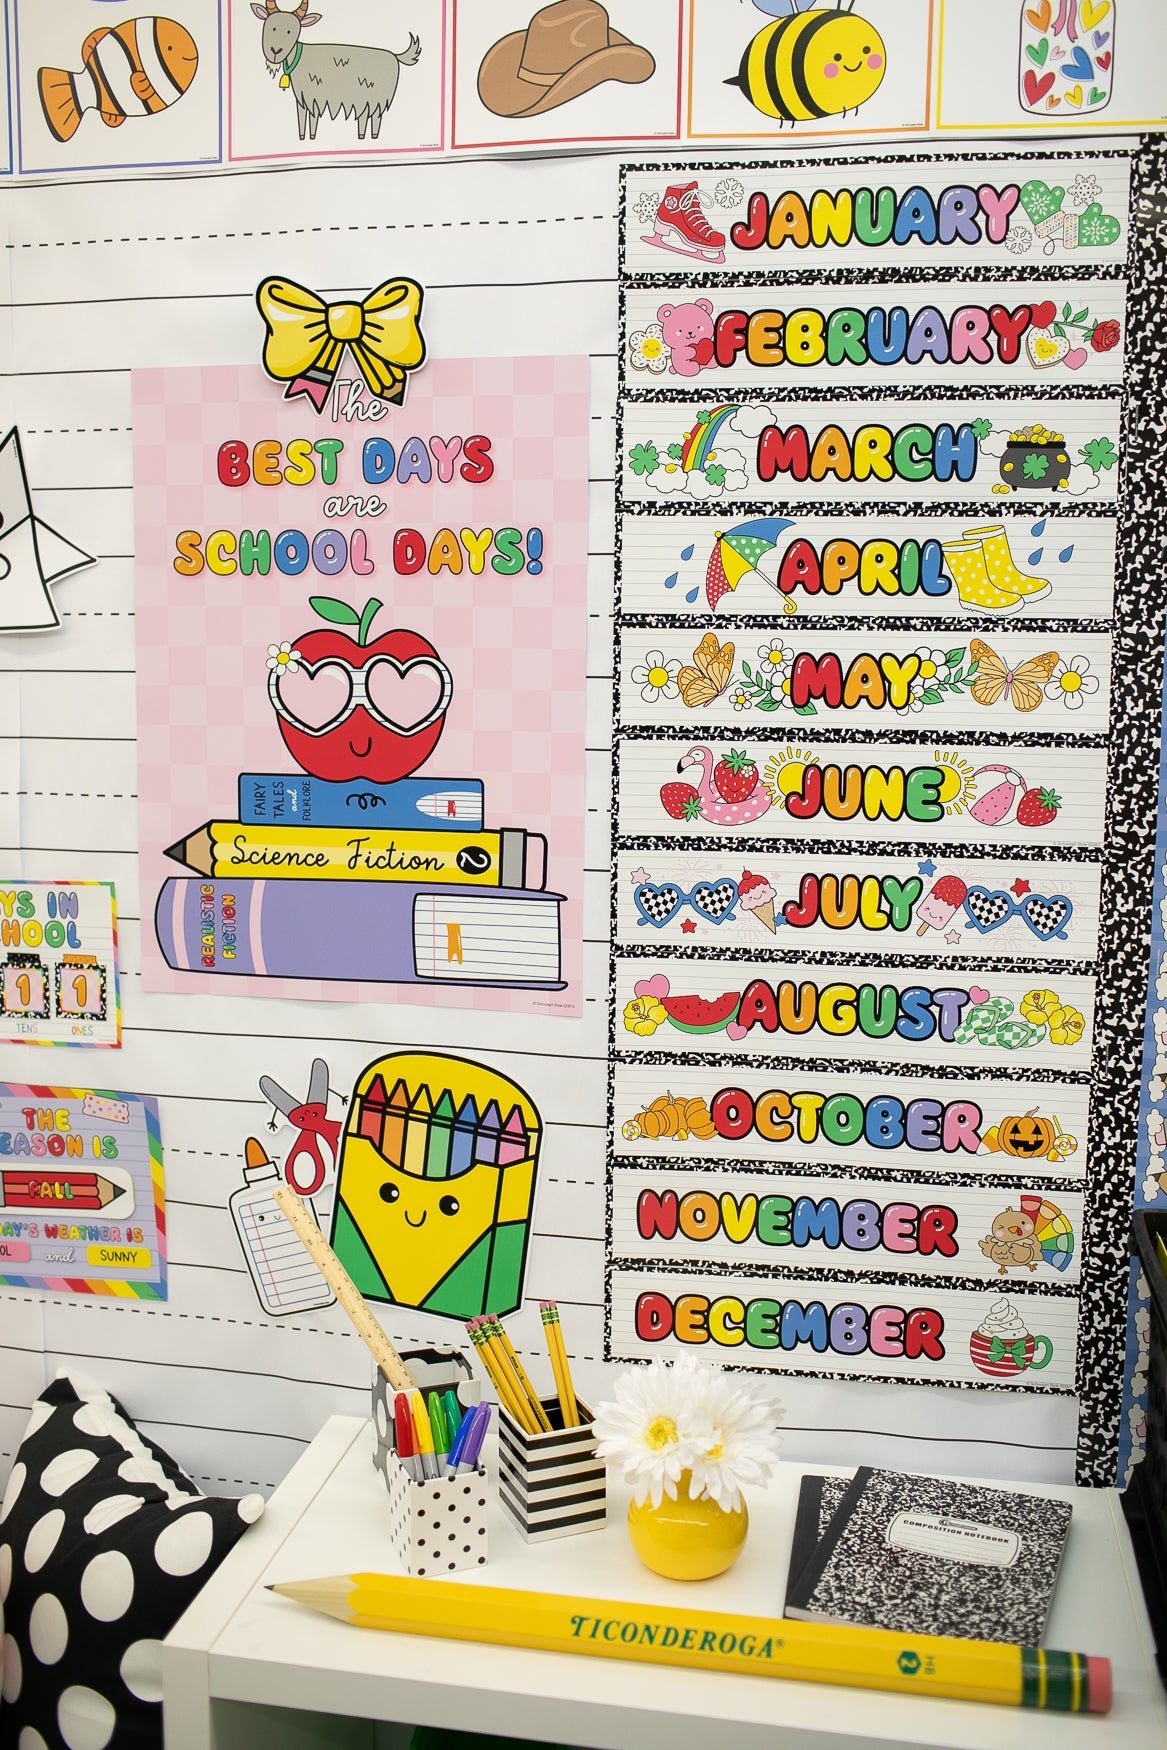 JANUARY
FEBRUARY
MARCH
APRIL
MAY
JUNE
JULY
AUGUST
OCTOBER
NOVEMBER
DECEMBER
The
BEST DAYS
are
SCHOOL DAYS!
FAIRY
TALES
and
FOLKLORE
Science Fiction 2
REALISTIC
FICTION
YS IN
HOOL
1 1
TENS ONES
THE
EASON IS
FALL
AY'S WEATHER IS
OL and SUNNY
COMPOSITION NOTEBOOK
TICONDEROGA®
2 HB